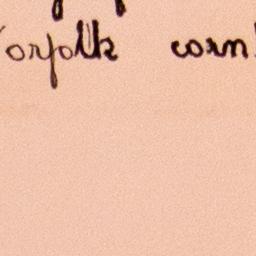 Norfolk corn